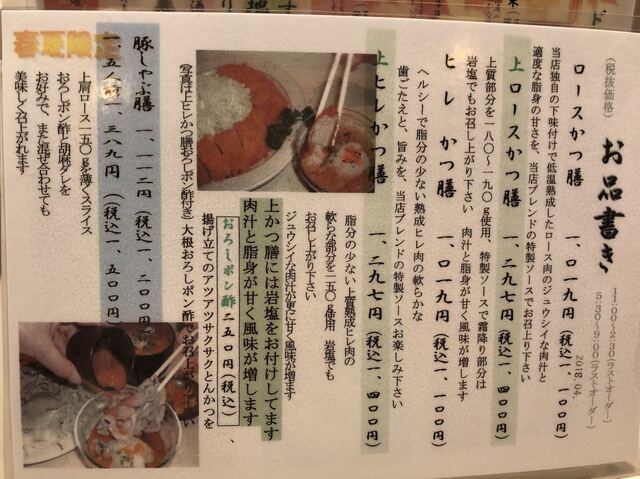 お品書き
(税抜価格)
11:00～2:30(ラストオーダー)
5:30～9:00(ラストオーダー)
2018,04,
ロースかつ膳 一、〇一九円(税込一、一〇〇円)
当店独自の下味付けで低温熟成したロース肉のジュウシイな肉汁と
適度な脂身の甘さを、当店ブレンドの特製ソースでお召上り下さい
上ロースかつ膳 一、二九七円(税込一、四〇〇円)
上質部分を一八〇～一九〇g使用、特製ソースで霜降り部分は
岩塩でもお召上り下さい 肉汁と脂身が甘く風味が増します
ヒレかつ膳 一、〇一九円(税込一、一〇〇円)
ヘルシーで脂分の少ない熟成ヒレ肉の軟らかな
歯ごたえと、旨みを、当店ブレンドの特製ソースお楽しみ下さい
上ヒレかつ膳 一、二九七円(税込一、四〇〇円)
脂分の少ない上質熟成ヒレ肉の
軟らな部分を一五〇g使用 岩塩でも
お召し上り下さい
ジュウシイな肉汁が更に甘く風味が増ます
上かつ膳には岩塩をお付けしてます
肉汁と脂身が甘く風味が増します
おろしポン酢二五〇円(税込)、
揚げ立てのアツアツサクサクとんかつを
大根おろしポン酢でお召上り下さい
写真は上ヒレかつ膳おろしポン酢付き)
春夏限定
豚しゃぶ膳 一、一一二円(税込一、二〇〇円)
一、五人前一、三八九円(税込一、五〇〇円)
上肩ロース一五〇gを薄くスライス
おろしポン酢と胡麻ダレを
お好みで、また混ぜ合わせても
美味しく召上がれます